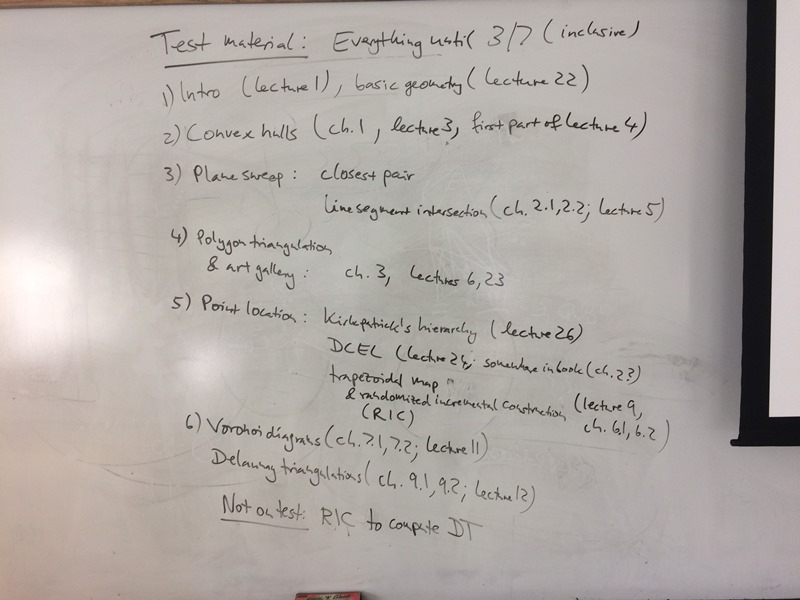 Test material: Everything until 3/7 (inclusive)
1) Intro (lecture 1), basic geometry (lecture 22)
2) Convex hulls (ch. 1, lecture 3, first part of lecture 4)
3) Plane sweep: closest pair
line segment intersection (ch. 2.1, 2.2; lecture 5)
4) Polygon triangulation
& art gallery: ch. 3, lectures 6, 23
5) Point location: Kirkpatrick's hierarchy (lecture 26)
DCEL (lecture 24; somewhere in book (ch. 2?)
trapezoidal map
& randomized incremental construction (lecture 9,
(RIC) ch. 6.1, 6.2)
6) Voronoi diagrams (ch. 7.1, 7.2; lecture 11)
Delaunay triangulations (ch. 9.1, 9.2; lecture 12)
Not on test: RIC to compute DT